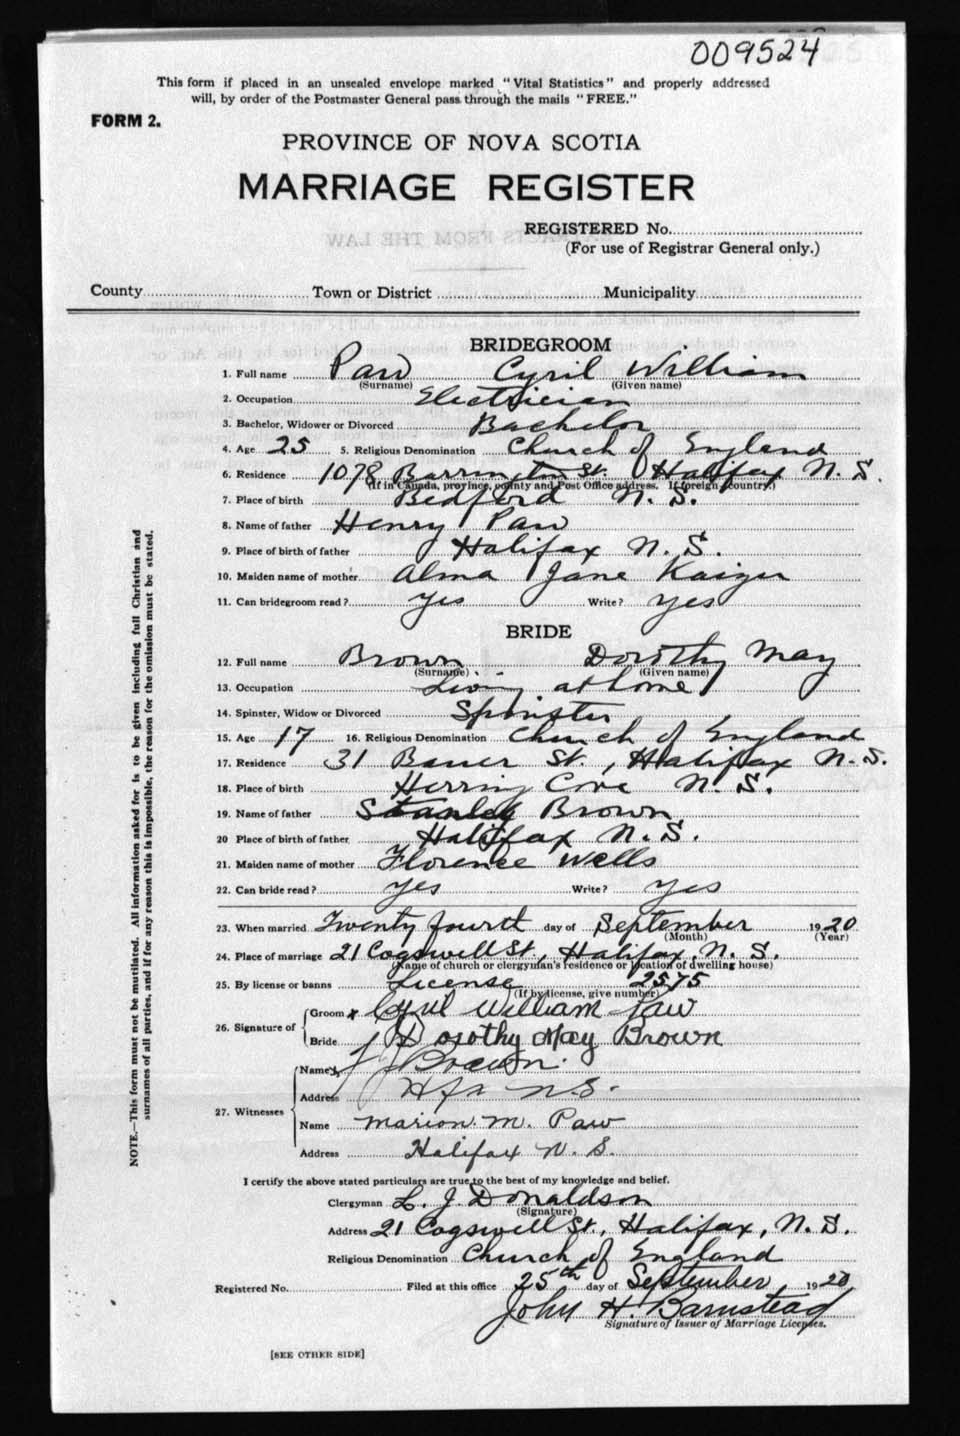 009524
This form if placed in an unsealed envelope marked "Vital Statistics" and properly addressed
will, by order of the Postmaster General pass through the mails "FREE."
FORM 2.
PROVINCE OF NOVA SCOTIA
MARRIAGE REGISTER
REGISTERED No.
(For use of Registrar General only.)
County Town or District Municipality
BRIDEGROOM
1. Full name Paw Cyril William
(Surname) (Given name)
2. Occupation Electrician
3. Bachelor, Widower or Divorced Bachelor
4. Age 25 5. Religious Denomination Church of England
6. Residence 1078 Barrington St. Halifax N. S.
(If in Canada, province, county and Post Office address. If foreign, country.)
7. Place of birth Bedford N. S.
8. Name of father Henry Paw
9. Place of birth of father Halifax N. S.
10. Maiden name of mother Alma Jane Kaizer
11. Can bridegroom read? yes Write? yes
BRIDE
12. Full name Brown Dorothy May
(Surname) (Given name)
13. Occupation Living at home
14. Spinster, Widow or Divorced Spinster
15. Age 17 16. Religious Denomination Church of England
17. Residence 31 Bauer St., Halifax N. S.
18. Place of birth Herring Cove N. S.
19. Name of father Stanley Brown
20 Place of birth of father Halifax N. S.
21. Maiden name of mother Florence Wells
22. Can bride read? yes Write? yes
23. When married Twenty fourth day of September 1920
(Month) (Year)
24. Place of marriage 21 Cogswell St., Halifax, N. S.
(Name of church or clergyman's residence or location of dwelling house)
25. By license or banns License 2575
(If by license, give number)
26. Signature of
Groom x Cyril William Paw
Bride Dorothy May Brown
27. Witnesses
Name J Brown
Address Hfx N. S.
Name Marion. M. Paw
Address Halifax N. S.
I certify the above stated particulars are true to the best of my knowledge and belief.
Clergyman L. J. Donaldson
(Signature)
Address 21 Cogswell St., Halifax, N. S.
Religious Denomination Church of England
Registered No. Filed at this office 25th day of September, 1920
John H. Barnstead
Signature of Issuer of Marriage Licenses.
[SEE OTHER SIDE]
NOTE.—This form must not be mutilated. All information asked for is to be given including full Christian and
surnames of all parties, and if for any reason this is impossible, the reason for the omission must be stated.